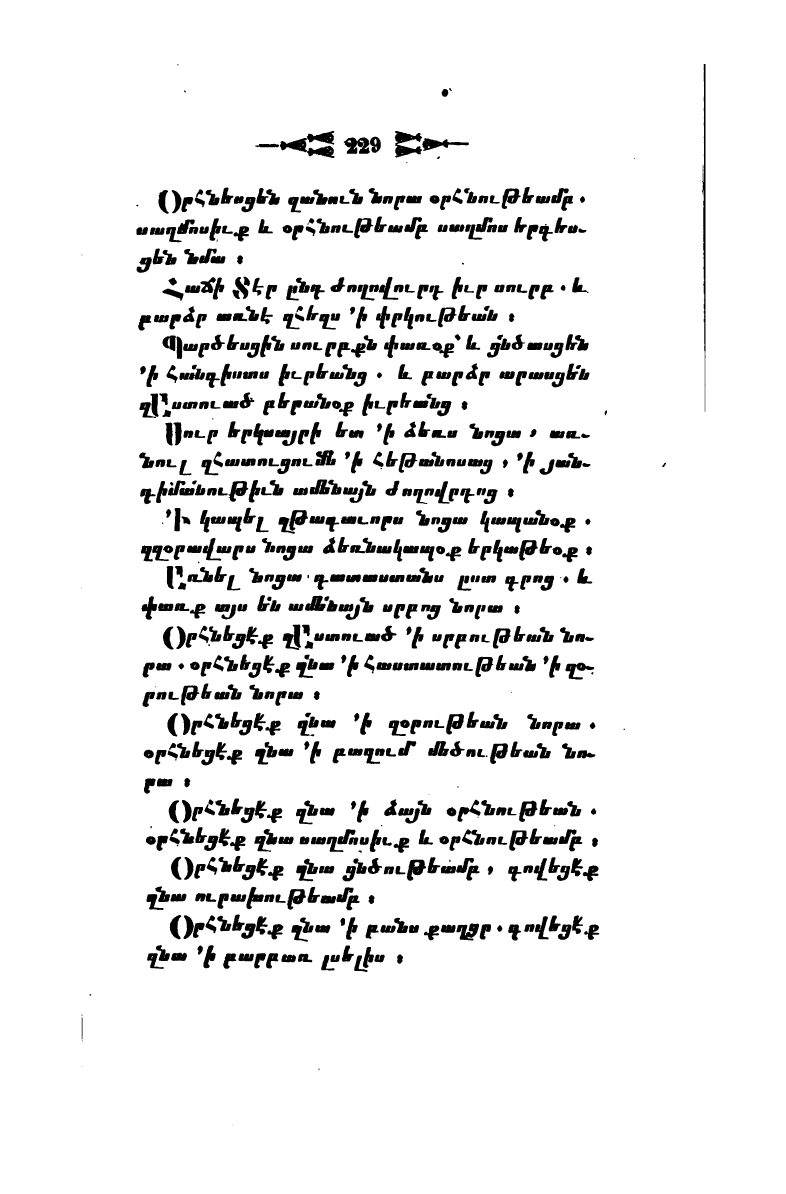 229
Օրհնեսցեն զանուն նորա օրհնութեամբ.
սաղմոսիւք և օրհնութեամբ սաղմոս երգես-
ցեն նմա ։
Հաճի Տէր ընդ ժողովուրդ իւր սուրբ. և
բարձր առնէ զհեզս ՚ի փրկութեան ։
Պարծեսցին սուրբքն փառօք՝ և ցնծասցեն
՚ի հանգիստս իւրեանց. և բարձր արասցեն
զԱստուած բերանօք իւրեանց ։
Սուր երկսայրի ետ ՚ի ձեռս նոցա, առ-
նուլ զհատուցումն ՚ի հեթանոսաց, ՚ի յան-
դիմանութիւն ամենայն ժողովրդոց ։
՚Ի կապել զթագաւորս նոցա կապանօք.
զզօրավարս նոցա ձեռնակապօք երկաթեօք ։
Առնել նոցա դատաստանս ըստ գրոց. և
փառք այս են ամենայն սրբոց նորա ։
Օրհնեցէք զԱստուած ՚ի սրբութեան նո-
րա. օրհնեցէք զնա ՚ի հաստատութեան ՚ի զօ-
րութեան նորա ։
Օրհնեցէք զնա ՚ի զօրութեան նորա.
օրհնեցէք զնա ՚ի բազում մեծութեան նո-
րա ։
Օրհնեցէք զնա ՚ի ձայն օրհնութեան.
օրհնեցէք զնա սաղմոսիւք և օրհնութեամբ ։
Օրհնեցէք զնա ցնծութեամբ, գովեցէք
զնա ուրախութեամբ ։
Օրհնեցէք զնա ՚ի բանս քաղցր. գովեցէք
զնա ՚ի բարբառ լսելիս ։